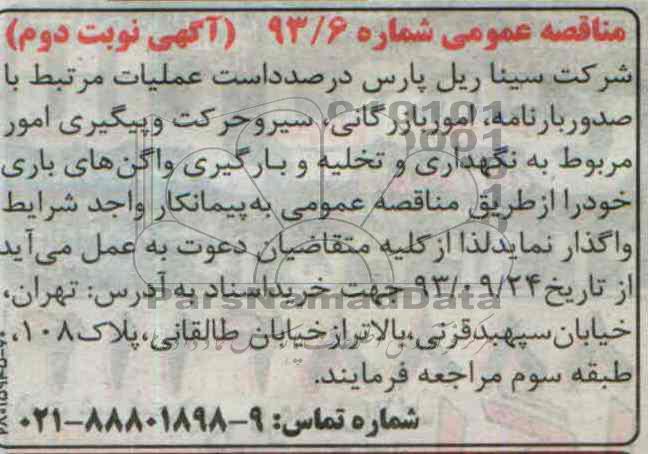 مناقصه عمومی شماره ۹۳/۶ (آگهی نوبت دوم)
شرکت سینا ریل پارس درصدداست عملیات مرتبط با
صدوربارنامه، اموربازرگانی، سیروحرکت وپیگیری امور
مربوط به نگهداری و تخلیه و بارگیری واگن‌های باری
خودرا ازطریق مناقصه عمومی به‌پیمانکار واجد شرایط
واگذار نمایدلذا ازکلیه متقاضیان دعوت به عمل می‌آید
از تاریخ ۹۳/۰۹/۲۴ جهت خریداسناد به آدرس: تهران،
خیابان‌سپهبدقرنی،بالاترازخیابان طالقانی،پلاک۱۰۸،
طبقه سوم مراجعه فرمایند.
شماره تماس: ۹-۸۸۸۰۱۸۹۸-۰۲۱
ParsNamadData